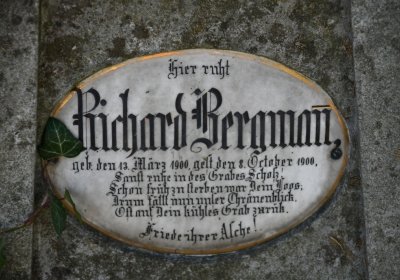 Hier ruht
Richard Bergman̅,
geb. den 13. März 1900, gest. den 8. October 1900,
Sanft ruhe in des Grabes Schoß,
Schon früh zu sterben war Dein Loos;
Drum fällt nun unser Thränenblick,
Oft auf Dein kühles Grab zurück.
Friede ihrer Asche!